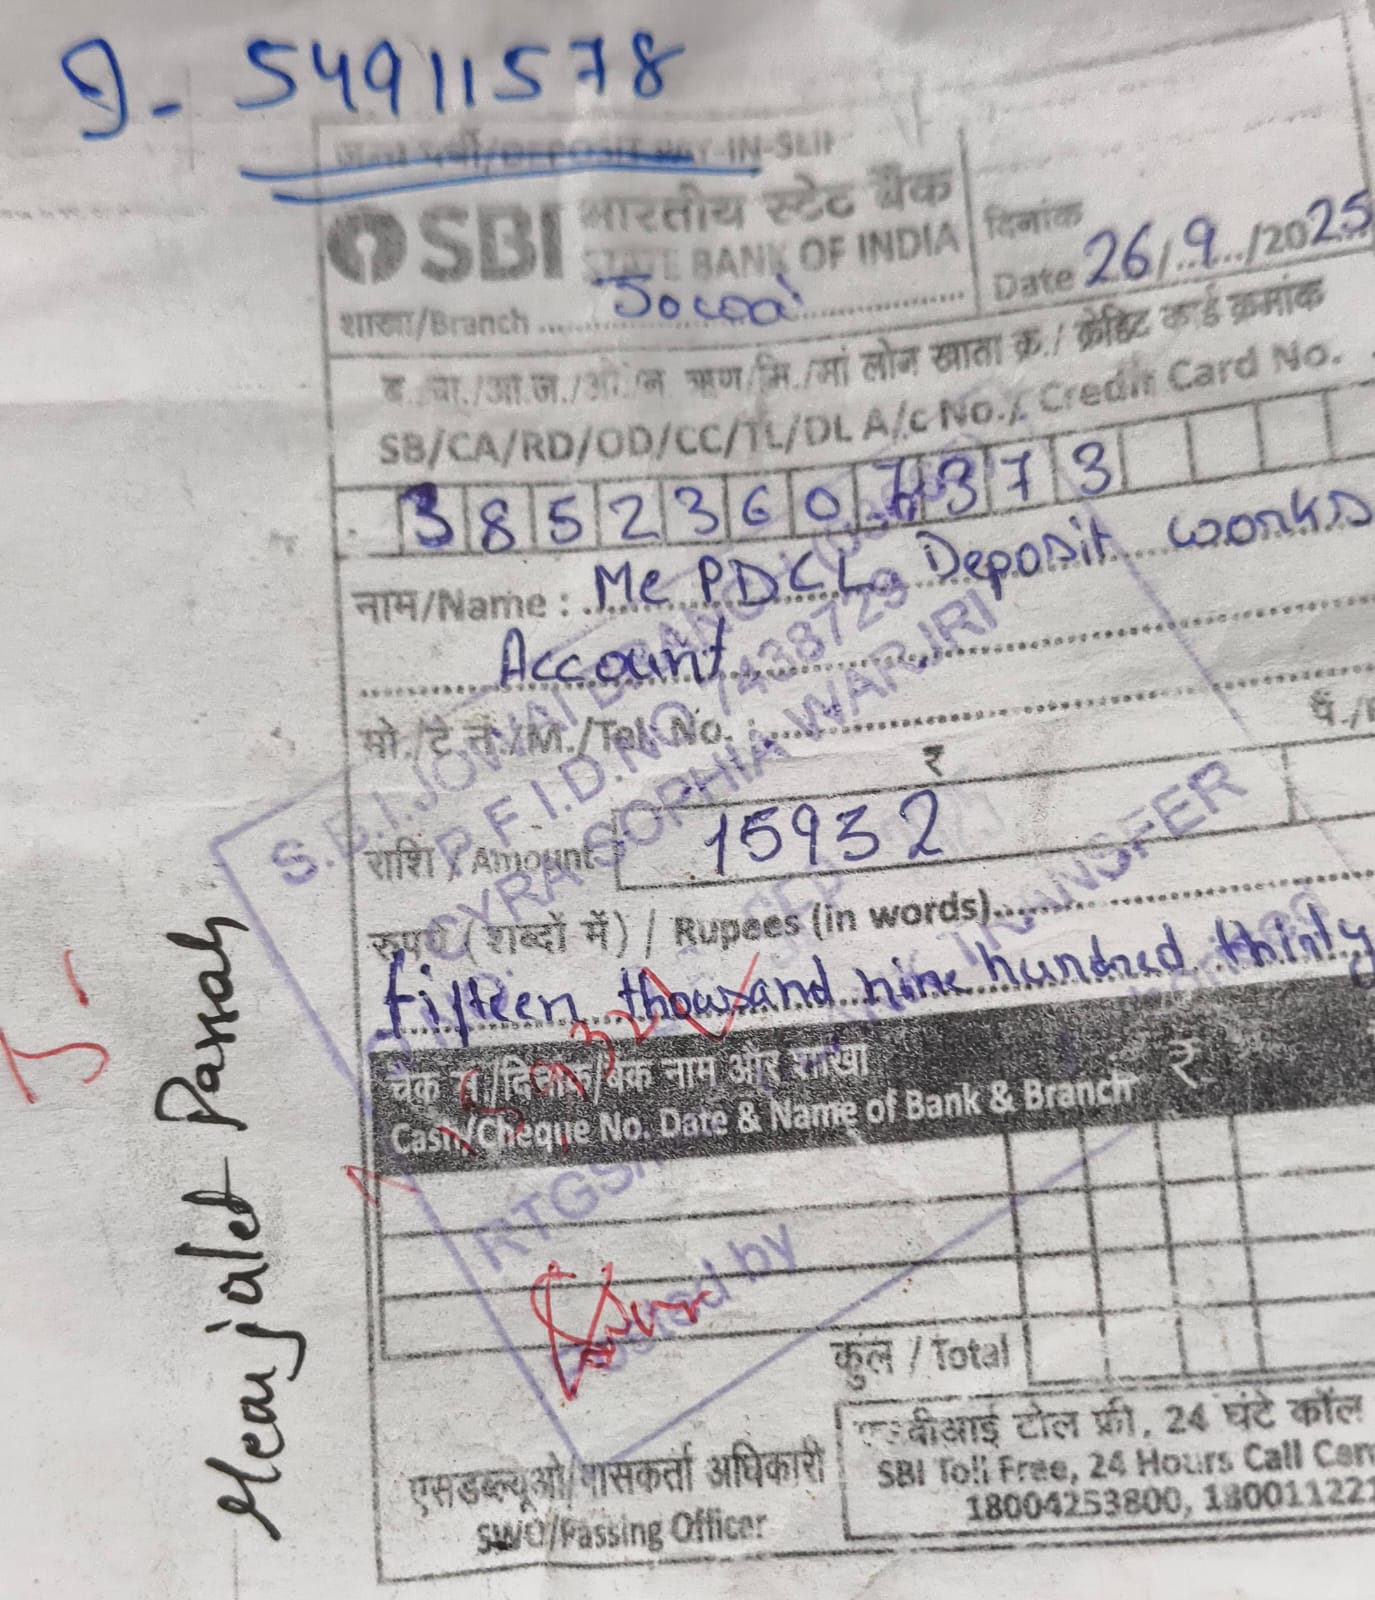 J- 54911578
जमा पर्ची/DEPOSIT PAY-IN-SLIP
SBI भारतीय स्टेट बैंक
STATE BANK OF INDIA
शाखा/Branch Jowai
दिनांक
Date 26/9/2025
SB/CA/RD/OD/CC/TL/DL A/c No./ Credit Card No.
38523607373
नाम/Name : Me PDCL Deposit works
Account
मो./टे.नं./M./Tel. No. :
₹
राशि / Amount 15932
रुपये (शब्दों में) / Rupees (in words)
fifteen thousand nine hundred thirty
15932
चैक सं./दिनांक/बैंक नाम और शाखा ₹
Cash/Cheque No. Date & Name of Bank & Branch
कुल / Total
एसडब्ल्यूओ/पासकर्ता अधिकारी
SWO/Passing Officer
एसबीआई टोल फ्री, 24 घंटे कॉल
SBI Toll Free, 24 Hours Call Cen
18004253800, 180011221
S.B.I. JOWAI BRANCH
P F I.D. NO 7438729
CYRA SOPHIA WARJRI
TRANSFER
Posted by
Passah